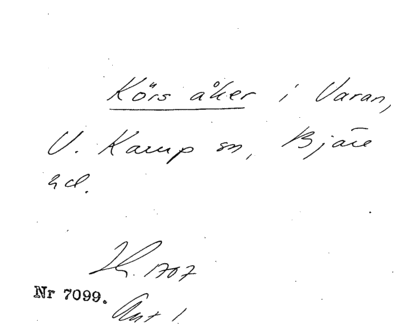 Körs åker i Varan,
V. Karup sn, Bjäre
hd.
Lt. 1707
Nr 7099.
Ant 1